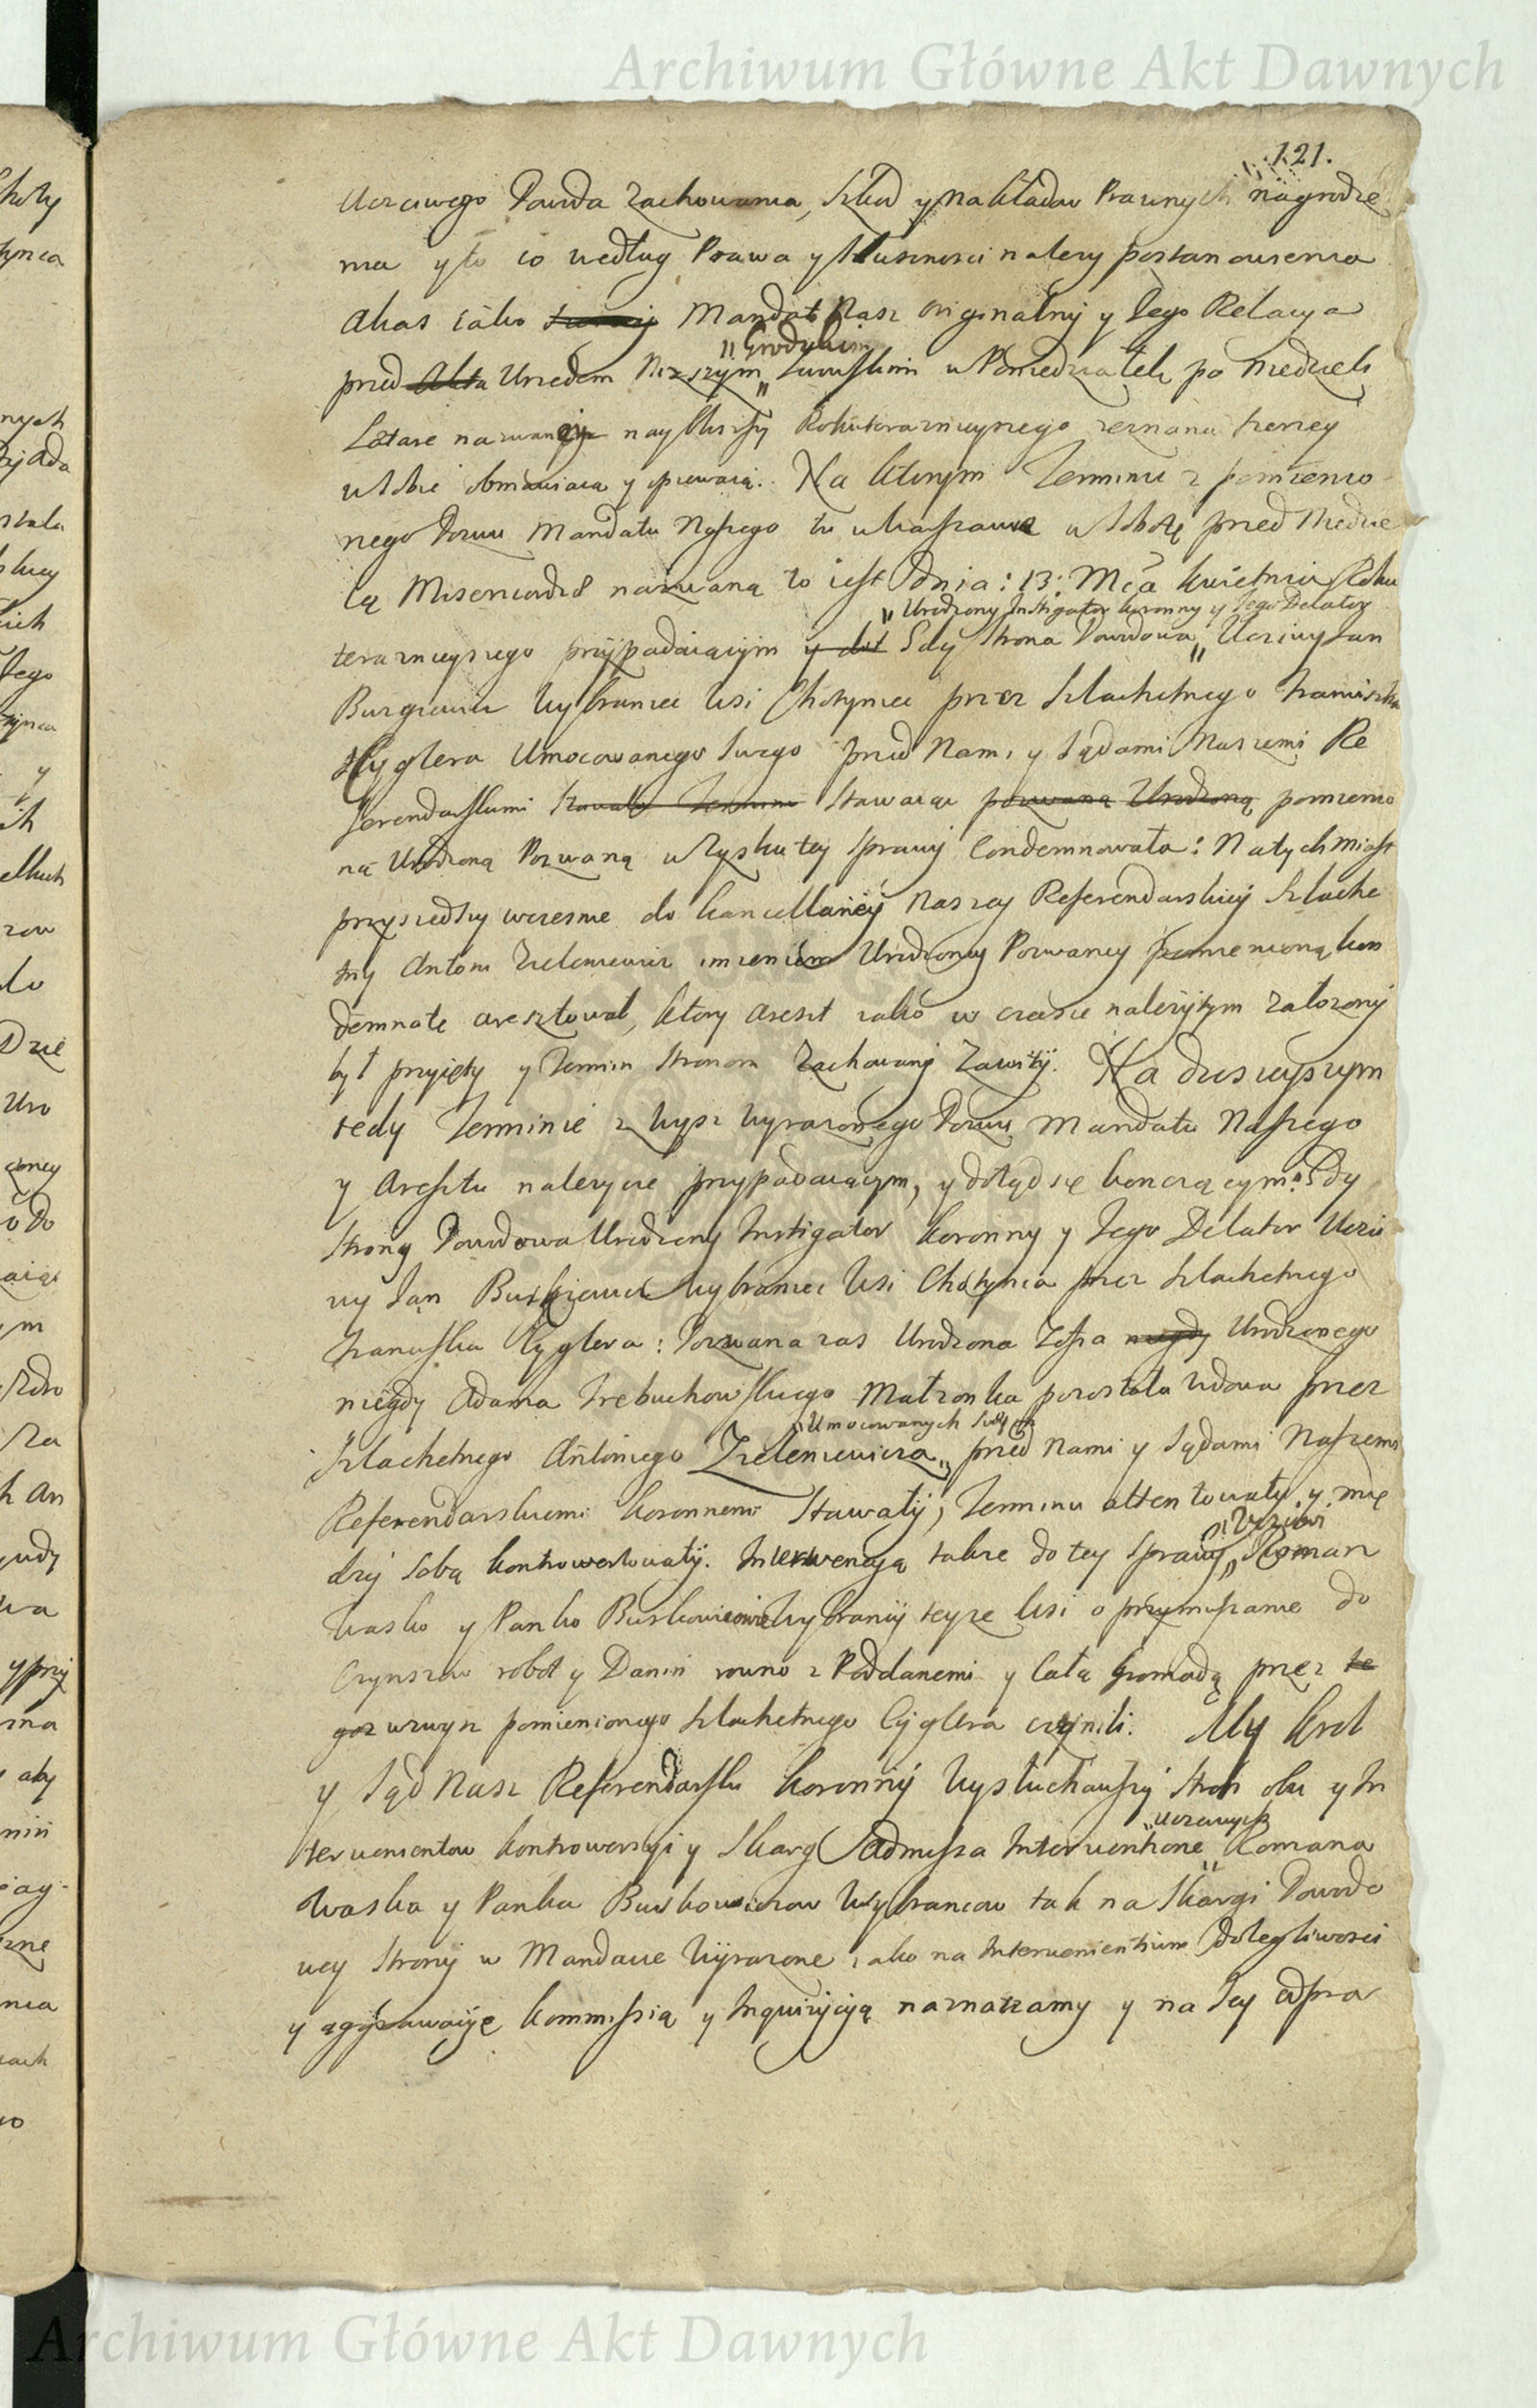 Archiwum Główne Akt Dawnych
121.
Uczciwego Powoda zachowania, Szkod y nakładow Prawnych nagrodze
nia y to co według Prawa y słuszności należy postanowienia
Akas iako Mandat Nasz originalny y Jego Relacya
"Grodzkim
przed Akta Urzędem Niższym" w Poniedziałek po Niedzieli
Lætare nazwaney naybliższy Roku teraznieyszego zeznana szerzey
w sobie obmawiaią y opiewaią. Na ktorym Terminie z pomienio
nego Pozwu Mandatu Naszego tu w Warszawie w Sobotę przed Niedzie
lą Misericordiæ nazwaną to iest Dnia: 13: Mca Kwietnia Roku
"Urodzony Instigator Koronny y Jego Delator
teraznieyszego przypadaiącym y Gdy Strona Powodowa" Uczciwy Jan
Wybraniec Wsi Chotyniec przez Szlachetnego Franciszka
Cyglera Umocowanego Swego przed Nami y Sądami Naszemi Re
ferendarskiemi Stawaiąc pozwaną Urodzoną pomienio
ną Urodzoną Pozwaną w Zysku tey sprawy Condemnowała: Natychmiast
przyszedłszy wcześnie do Kancellaryi Naszey Referendarskiey Szlache
tny Antoni Zieleniewicz imieniem Urodzoney Pozwaney pomienioną kon
demnatę aresztował, ktory Areszt iako w czasie należytym założony
był przyięty y Termin Stronom Zachowany Zawity. Na dzisieyszym
tedy Terminie z wysz wyrażonego Pozwu Mandatu Naszego
y Aresztu należycie przypadaiącym, y dotąd się kończącym: Gdy
Strony Powodowa Urodzony Instigator Koronny y Jego Delator Uczci
wy Jan Wybraniec Wsi Chotynia przez Szlachetnego
Franciszka Cyglera: Pozwana zas Urodzona Zofia niegdy Urodzonego
niegdy Adama Trebuchowskiego Małżonka pozostała Wdowa przez
"Umocowanych Swych
Szlachetnego Antoniego Zieleniewicza" przed Nami y Sądami Naszemi
Referendarskiemi Koronnemi Stawały, Terminu attentowały y mię
"Uczciwi
dzy sobą kontrowertowały. Interwencyą także do tey sprawy" Roman
Wasko y Panko Wybrańcy teyże Wsi o przymuszanie do
Czynszow robot y Danin rowno z Poddanemi y Całą Gromadą przez te
goz wzwysz pomienionego Szlachetnego Cyglera czynili. My Krol
y Sąd Nasz Referendarski Koronny Wysłuchawszy Stron obu y In
"Uczciwych
terwenientow kontrowersyi y Skarg Admissa Interventione" Romana
Waska y Panka Wybrancow tak na Skargi Powodo
wey Strony w Mandacie wyrażone, iako na Intervenientium Dolegliwości
y Kommissią y Inquizycyą naznaczamy y na Jey odpra
Archiwum Główne Akt Dawnych